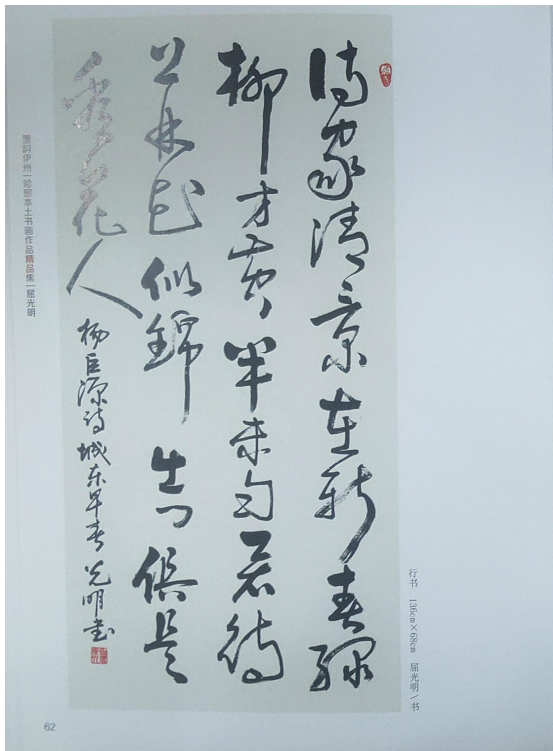 诗家清景在新春绿
柳才黄半未匀若待
上林花似锦出门俱是
看花人
杨巨源诗城东早春 光明书
行书 136cm×68cm 屈光明/书
墨韵伊州|哈密本土书画作品精品集|屈光明
62